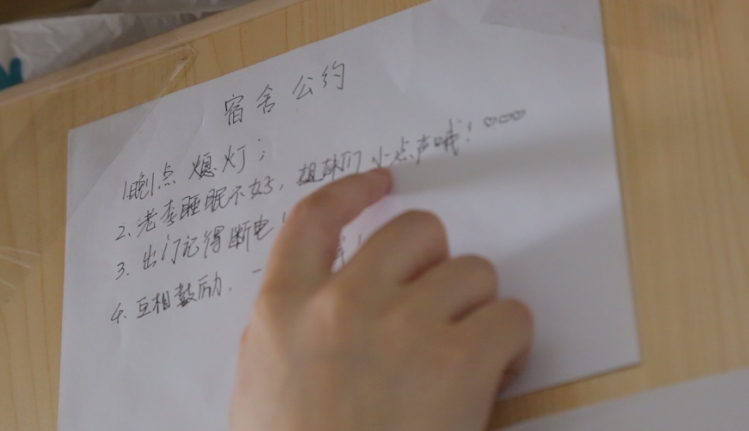 宿舍公约
1.晚点熄灯；
2.老李睡眠不好，姐妹们小点声哦！♡♡♡
3.出门记得断电！
4.互相鼓励，一